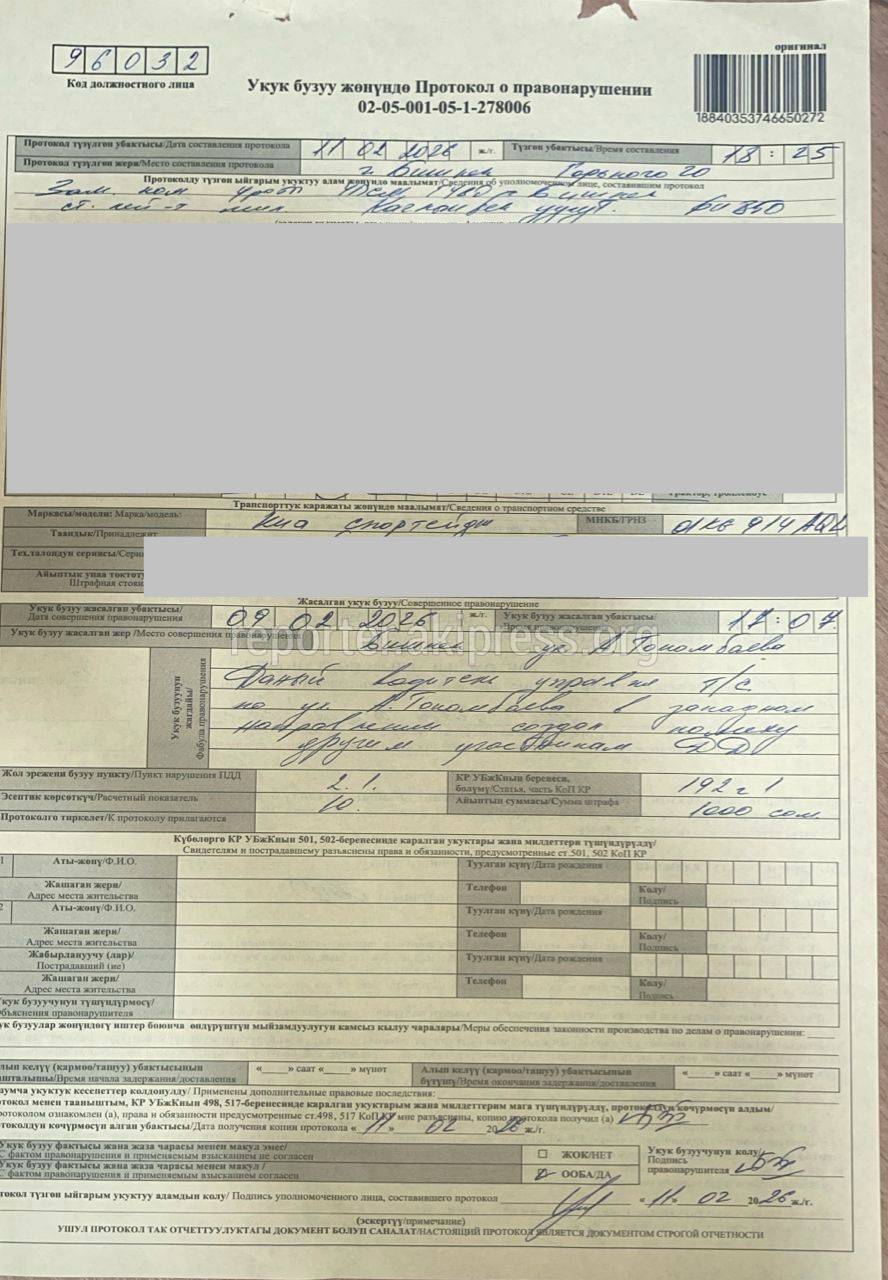 оригинал
96032
Код должностного лица
Укук бузуу жөнүндө Протокол о правонарушении
02-05-001-05-1-278006
18840353746650272
Протокол түзүлгөн убактысы/Дата составления протокола 11 02 2026 ж./г. Түзгөн убактысы/Время составления 18:25
Протокол түзүлгөн жери/Место составления протокола г. Бишкек Горького 20
Протоколду түзгөн ыйгарым укуктуу адам жөнүндө маалымат/Сведения об уполномоченном лице, составившим протокол
Зам. ком г. Бишкек
ст. лей-т мил. уулу
Транспорттук каражаты жөнүндө маалымат/Сведения о транспортном средстве
Маркасы/модели: Марка/модель: Киа спортейдж МНКБ/ГРНЗ 01KG 914 AQL
Таандык/Принадлежит
Тех.талондун сериясы/Серия
Айыптык унаа токтоту
Штрафная стоян
Жасалган укук бузуу/Совершенное правонарушение
Укук бузуу жасалган убактысы/ 09 02 2026 ж./г. Укук бузуу жасалган убактысы/ 17:07
Дата совершения правонарушения Время
Укук бузуу жасалган жер /Место совершения правонарушения Бишкек ул. А. Токомбаева
reporter.akipress.org
Укук бузуунун жагдайы/
Фабула правонарушения
Даный водитель управляя т/с
по ул. А. Токомбаева в западном
направлении создал помеху
другим участникам ДД
Жол эрежени бузуу пункту/Пункт нарушения ПДД 2.1. КР УБжКнын беренеси, бөлүмү/Статья, часть КоП КР 192 ч 1
Эсептик көрсөткүч/Расчетный показатель 10. Айыптын суммасы/Сумма штрафа 1000 сом
Протоколго тиркелет/К протоколу прилагаются
Күбөлөргө КР УБжКнын 501, 502-беренесинде каралган укуктары жана милдеттери түшүндүрүлдү/
Свидетелям и пострадавшему разъяснены права и обязанности, предусмотренные ст.501, 502 КоП КР
1 Аты-жөнү/Ф.И.О. Туулган күнү/Дата рождения
Жашаган жери/ Телефон Колу/
Адрес места жительства Подпись
2 Аты-жөнү/Ф.И.О. Туулган күнү/Дата рождения
Жашаган жери/ Телефон Колу/
Адрес места жительства Подпись
Жабырлануучу (лар)/ Туулган күнү/Дата рождения
Пострадавший (не)
Жашаган жери/ Телефон Колу/
Адрес места жительства Подпись
Укук бузуучунун түшүндүрмөсү/
Объяснения правонарушителя
ук бузуулар жөнүндөгү иштер боюнча өндүрүштүн мыйзамдуулугун камсыз кылуу чаралары/Меры обеспечения законности производства по делам о правонарушении:
лып келүү (кармоо/ташуу) убактысынын «____» саат «____» мүнөт Алып келүү (кармоо/ташуу) убактысынын «____» саат «____» мүнөт
шталышы/Время начала задержания/доставления бүтүшү/Время окончания задержания/доставления
умча укуктук кесепеттер колдонулду/ Применены дополнительные правовые последствия:
токол менен тааныштым, КР УБжКнын 498, 517-беренесинде каралган укуктарым жана милдеттерим мага түшүндүрүлдү, протоколдун көчүрмөсүн алдым/
ротоколом ознакомлен (а), права и обязанности предусмотренные ст.498, 517 КоП КР мне разъяснены, копию протокола получил (а)
токолдун көчүрмөсүн алган убактысы/Дата получения копии протокола « 11 » 02 2026 ж./г.
Укук бузуу фактысы жана жаза чарасы менен макул эмес/ ☐ ЖОК/НЕТ Укук бузуучунун колу/
С фактом правонарушения и применяемым взысканием не согласен Подпись
Укук бузуу фактысы жана жаза чарасы менен макул / ☑ ООБА/ДА правонарушителя
С фактом правонарушения и применяемым взысканием согласен
токол түзгөн ыйгарым укуктуу адамдын колу/ Подпись уполномоченного лица, составившего протокол « 11 » 02 2026 ж./г.
(эскертүү/примечание)
УШУЛ ПРОТОКОЛ ТАК ОТЧЕТТУУЛУКТАГЫ ДОКУМЕНТ БОЛУП САНАЛАТ/НАСТОЯЩИЙ ПРОТОКОЛ ЯВЛЯЕТСЯ ДОКУМЕНТОМ СТРОГОЙ ОТЧЕТНОСТИ